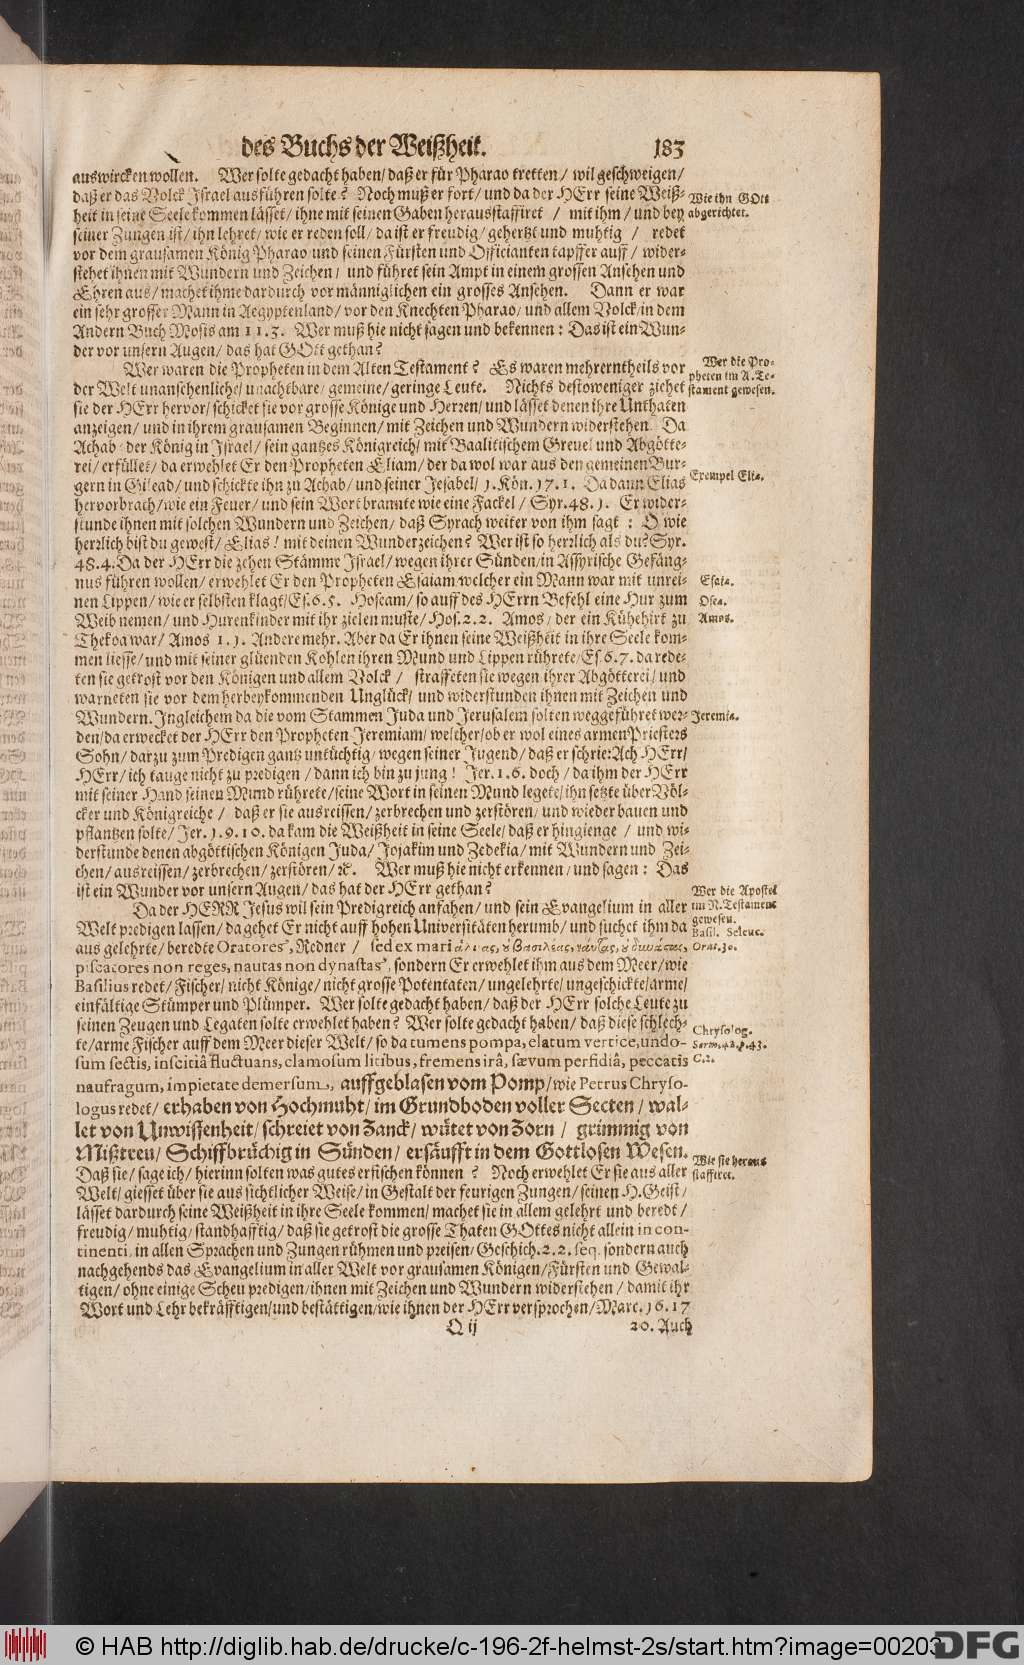 des Buchs der Weißheit. 183
auswircken wollen. Wer solte gedacht haben/ daß er für Pharao tretten/ wil geschweigen/
daß er das Volck Israel ausführen solte? Noch muß er fort/ und da der HErr seine Weiß-
heit in seine Seele kommen lässet/ ihne mit seinen Gaben herausstaffiret / mit ihm/ und bey
seiner Zungen ist/ ihn lehret/ wie er reden soll/ da ist er freudig/ gehertzt und muhtig / redet
vor dem grausamen König Pharao und seinen Fürsten und Officianten tapffer auff/ wider-
stehet ihnen mit Wundern und Zeichen/ und führet sein Ampt in einem grossen Ansehen und
Ehren aus/ machet ihme dardurch vor männiglichen ein grosses Ansehen. Dann er war
ein sehr grosser Mann in Aegyptenland/ vor den Knechten Pharao/ und allem Volck/ in dem
Andern Buch Mosis am 11.3. Wer muß hie nicht sagen und bekennen: Das ist ein Wun-
der vor unsern Augen/ das hat GOtt gethan?
Wie ihn GOtt
abgerichtet.
Wer waren die Propheten in dem Alten Testament? Es waren mehrerntheils vor
der Welt unansehenliche/ unachtbare/ gemeine/ geringe Leute. Nichts destoweniger ziehet
sie der HErr hervor/ schicket sie vor grosse Könige und Herzen/ und lässet denen ihre Unthaten
anzeigen/ und in ihrem grausamen Beginnen/ mit Zeichen und Wundern widerstehen. Da
Achab/ der König in Israel/ sein gantzes Königreich/ mit Baalitischem Greuel und Abgötte-
rei/ erfüllet/ da erwehlet Er den Propheten Eliam/ der da wol war aus den gemeinen Bur-
gern in Gilead/ und schickte ihn zu Achab/ und seiner Jesabel/ 1. Kön. 17. 1. Da dann Elias
hervorbrach/ wie ein Feuer/ und sein Wort brannte wie eine Fackel / Syr. 48. 1. Er wider-
stunde ihnen mit solchen Wundern und Zeichen/ daß Syrach weiter von ihm sagt : O wie
herzlich bist du gewest/ Elias! mit deinen Wunderzeichen? Wer ist so herzlich als du? Syr.
48.4. Da der HErr die zehen Stämme Israel/ wegen ihrer Sünden/ in Assyrische Gefäng-
nus führen wollen/ erwehlet Er den Propheten Esaiam welcher ein Mann war mit unrei-
nen Lippen/ wie er selbsten klagt/ Es. 6. 5. Hoseam/ so auff des HErrn Befehl eine Hur zum
Weib nemen/ und Hurenkinder mit ihr zielen muste/ Hos. 2. 2. Amos/ der ein Kühehirt zu
Thekoa war/ Amos 1. 1. Andere mehr. Aber da Er ihnen seine Weißheit in ihre Seele kom-
men liesse/ und mit seiner glüenden Kohlen ihren Mund und Lippen rührete/ Es. 6. 7. da rede-
ten sie getrost vor den Königen und allem Volck / straffeten sie wegen ihrer Abgötterei/ und
warneten sie vor dem herbeykommenden Unglück/ und widerstunden ihnen mit Zeichen und
Wundern. Ingleichem da die vom Stammen Juda und Jerusalem solten weggeführet wer-
den/ da erwecket der HErr den Propheten Jeremiam/ welcher/ ob er wol eines armen Priesters
Sohn/ darzu zum Predigen gantz untüchtig/ wegen seiner Jugend/ daß er schrie: Ach HErr/
HErr/ ich tauge nicht zu predigen / dann ich bin zu jung! Jer. 1. 6. doch / da ihm der HErr
mit seiner Hand seinen Mund rührete/ seine Wort in seinen Mund legete/ ihn setzte über Völ-
cker und Königreiche / daß er sie ausreissen/ zerbrechen und zerstören/ und wieder bauen und
pflantzen solte/ Jer. 1. 9. 10. da kam die Weißheit in seine Seele/ daß er hingienge / und wi-
derstunde denen abgöttischen Königen Juda/ Jojakim und Zedekia/ mit Wundern und Zei-
chen/ ausreissen/ zerbrechen/ zerstören/ ꝛc. Wer muß hie nicht erkennen/ und sagen: Das
ist ein Wunder vor unsern Augen/ das hat der HErr gethan?
Wer die Pro-
pheten im A. Te-
stament gewesen.
Exempel Eliæ.
Esaiæ.
Oseæ.
Amos.
Jeremiæ.
Da der HERR Jesus wil sein Predigreich anfahen/ und sein Evangelium in aller
Welt predigen lassen/ da gehet Er nicht auff hohen Universitäten herumb/ und suchet ihm da
aus gelehrte/ beredte Oratores, Redner / sed ex mari
piscatores non reges, nautas non dynastas, sondern Er erwehlet ihm aus dem Meer/ wie
Basilius redet/ Fischer/ nicht Könige/ nicht grosse Potentaten/ ungelehrte/ ungeschickte/ arme/
einfältige Stümper und Plümper. Wer solte gedacht haben/ daß der HErr solche Leute zu
seinen Zeugen und Legaten solte erwehlet haben? Wer solte gedacht haben/ daß diese schlech-
te/ arme Fischer auff dem Meer dieser Welt/ so da tumens pompa, elatum vertice, undo-
sum sectis, inscitiâ fluctuans, clamosum litibus, fremens irâ, sævum perfidiâ, peccatis
naufragum, impietate demersum, auffgeblasen vom Pomp/ wie Petrus Chryso-
logus redet/ erhaben von Hochmuht/ im Grundboden voller Secten/ wal-
let von Unwissenheit/ schreiet von Zanck/ wütet von Zorn / grimmig von
Mißtreu/ Schiffbrüchig in Sünden/ ersäufft in dem Gottlosen Wesen.
Daß sie/ sage ich/ hierinn solten was gutes erfischen können ? Noch erwehlet Er sie aus aller
Welt/ giesset über sie aus sichtlicher Weise/ in Gestalt der feurigen Zungen/ seinen H. Geist/
lässet dardurch seine Weißheit in ihre Seele kommen/ machet sie in allem gelehrt und beredt /
freudig/ muhtig/ standhafftig/ daß sie getrost die grosse Thaten GOttes nicht allein in con-
tinenti, in allen Sprachen und Zungen rühmen und preisen/ Geschich. 2. 2. seq. sondern auch
nachgehends das Evangelium in aller Welt vor grausamen Königen/ Fürsten und Gewal-
tigen/ ohne einige Scheu predigen/ ihnen mit Zeichen und Wundern widerstehen / damit ihr
Wort und Lehr bekräfftigen/ und bestättigen/ wie ihnen der HErr versprochen/ Marc. 16. 17
Wer die Apostel
im N. Testament
gewesen.
Basil. Seleuc.
Orat. 30.
Chrysolog.
Serm. 42. p. 43.
C. 2.
Wie sie heraus
staffiret.
Q ij 20. Auch
© HAB http://diglib.hab.de/drucke/c-196-2f-helmst-2s/start.htm?image=00203
DFG